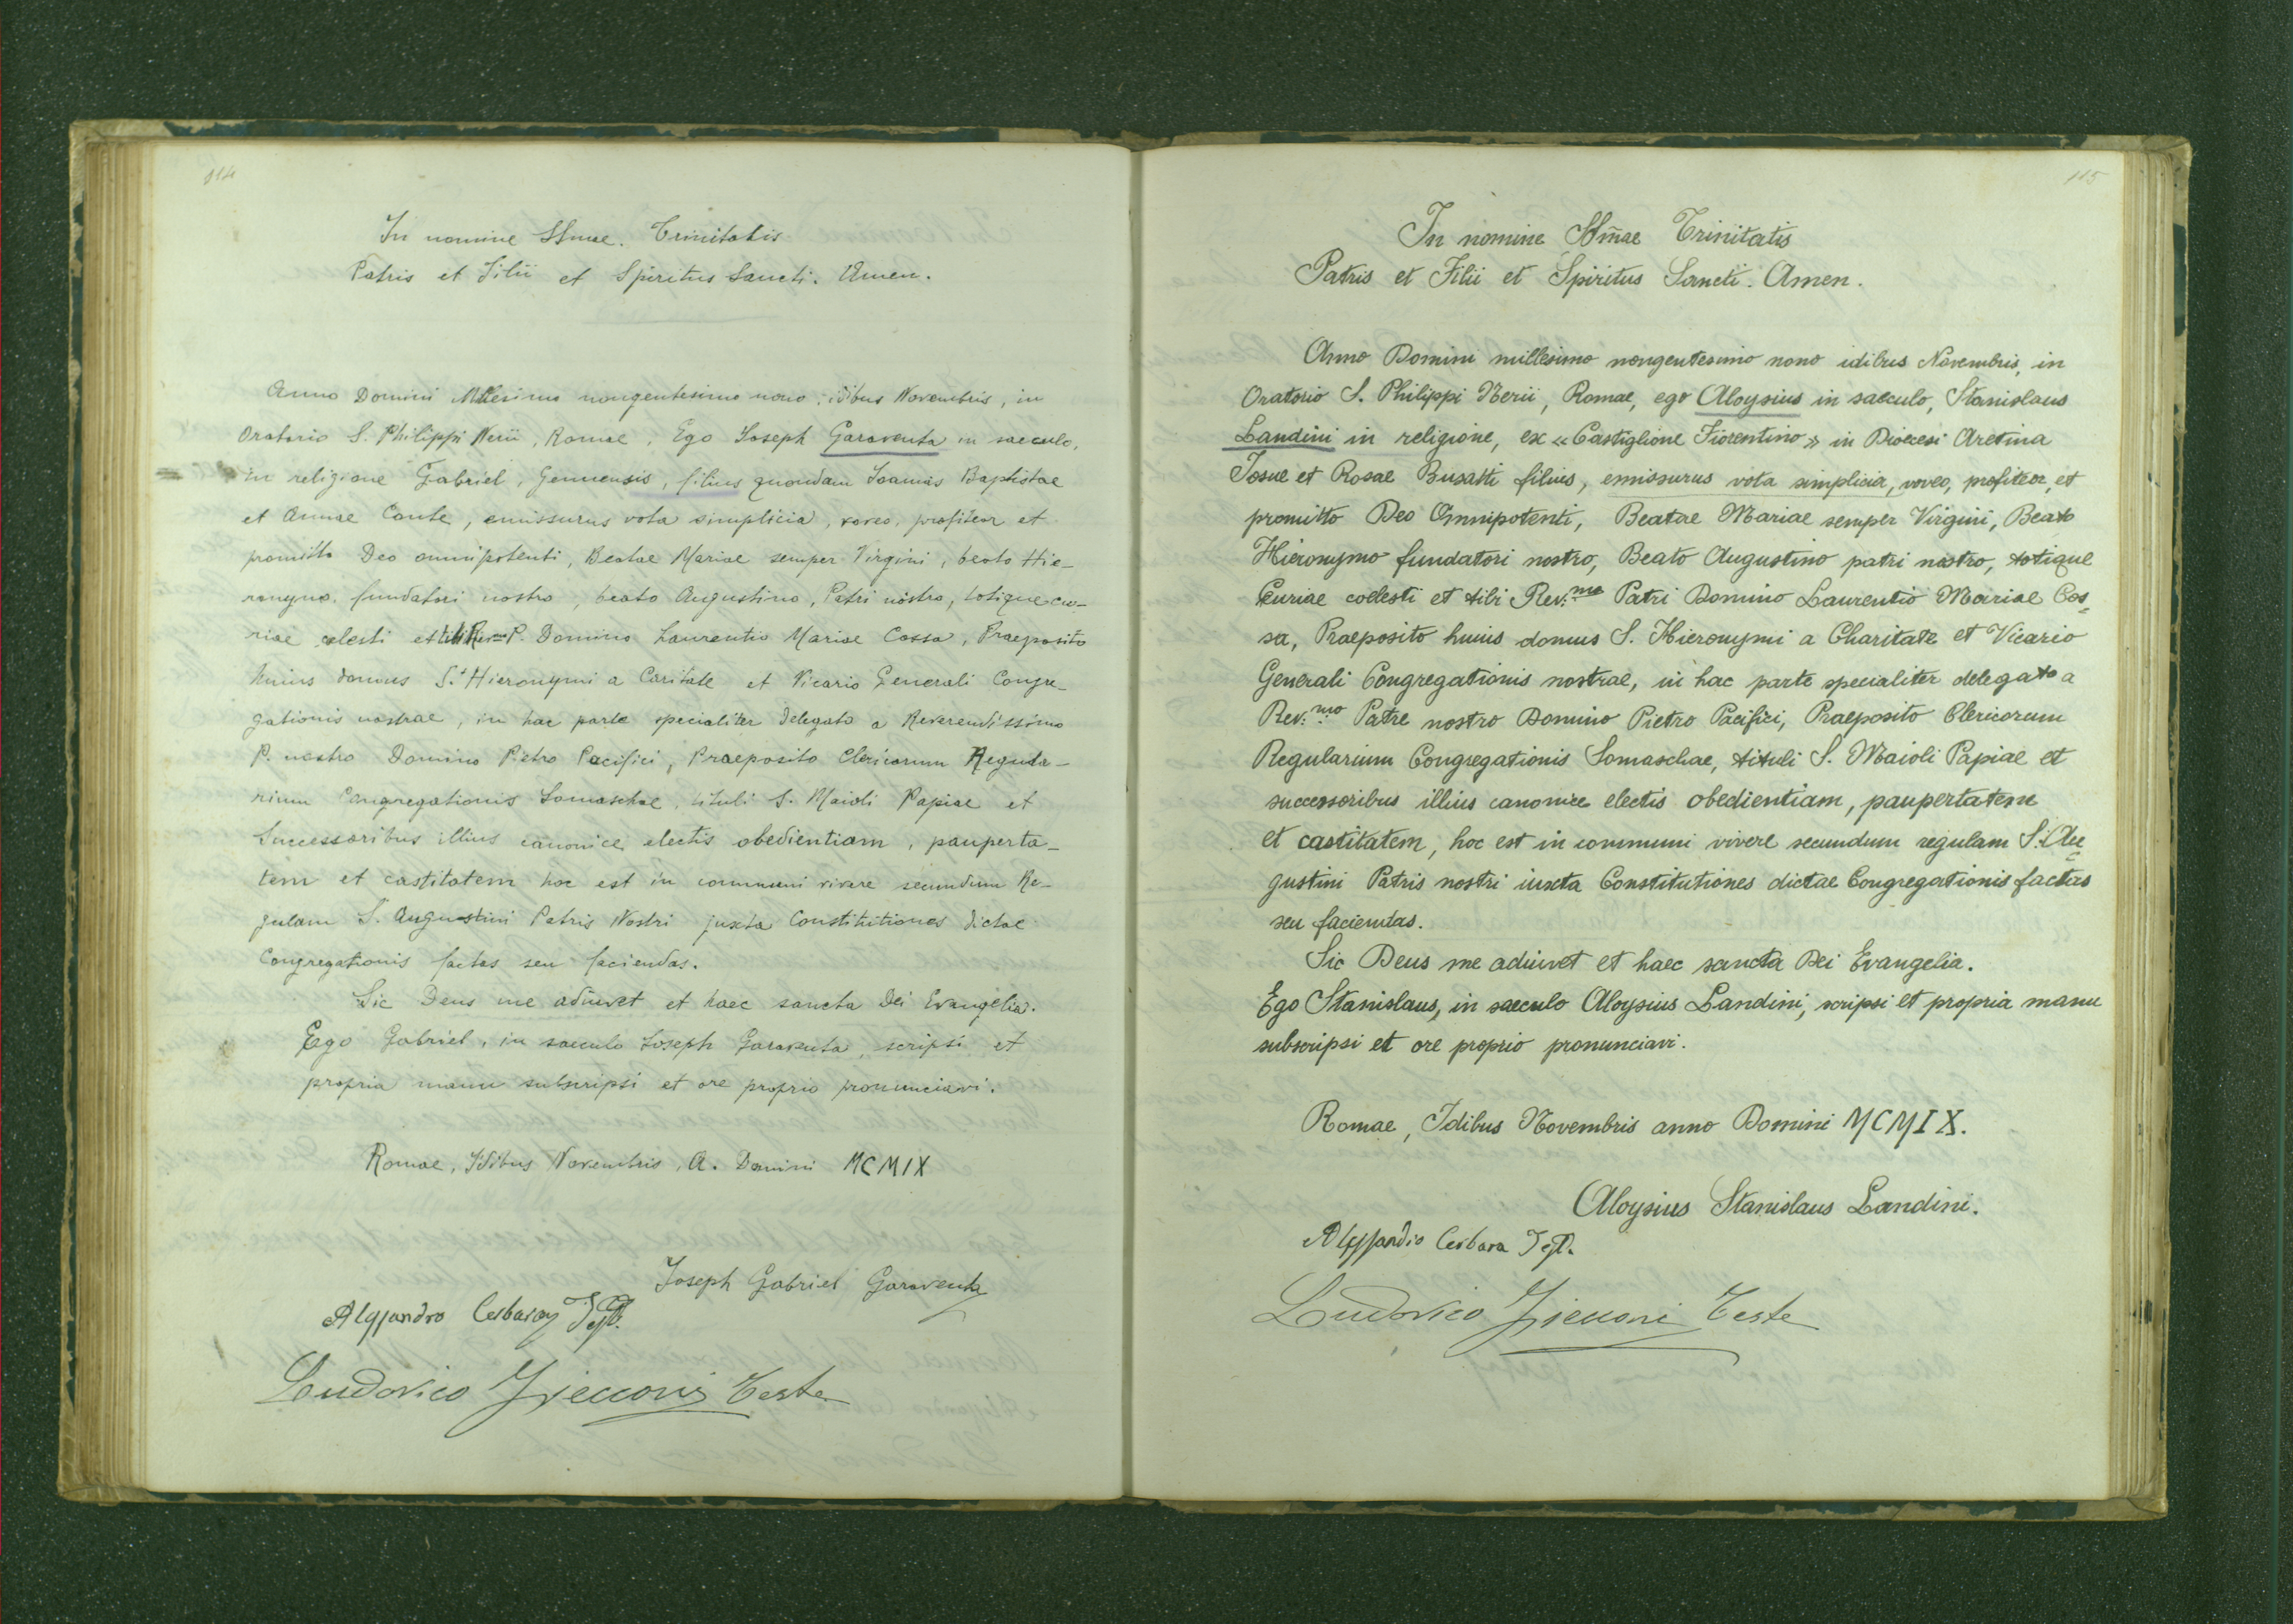 114
In nomine SSmae. Trinitatis
Patris et Filii et Spiritus Sancti. Amen.
Anno Domini Millesimo nongentesimo nono, idibus Novembris, in
Oratorio S. Philippi Nerii, Romae, Ego Joseph Garaventa in saeculo,
in religione Gabriel, Genuensis, filius quondam Joannis Baptistae
et Annae Conte, emissurus vota simplicia, voveo, profiteor et
promitto Deo omnipotenti, Beatae Mariae semper Virgini, beato Hie-
ronymo fundatori nostro, beato Augustino, Patri nostro, totique cu-
riae celesti et tibi Rev.mo P. Domino Laurentio Mariae Cossa, Praeposito
huius domus S.i Hieronymi a Caritate et Vicario Generali Congre-
gationis nostrae, in hac parte specialiter delegato a Reverendissimo
P. nostro Domino Pietro Pacifici, Praeposito Clericorum Regula-
rium Congregationis Somaschae, tituli S. Maioli Papiae et
Successoribus illius canonice electis obedientiam, pauperta-
tem et castitatem hoc est in communi vivere secundum Re-
gulam S. Augustini Patris Nostri juxta Constitutiones dictae
Congregationis factas seu faciendas.
Sic Deus me adiuvet et haec sancta Dei Evangelia.
Ego Gabriel, in saeculo Joseph Garaventa, scripsi et
propria manu subscripsi et ore proprio pronunciavi.
Romae, Idibus Novembris, A. Domini MCMIX
Joseph Gabriel Garaventa
Alessandro Cerbara Test.
Ludovico Teste
115
In nomine SSm̃ae Trinitatis
Patris et Filii et Spiritus Sancti. Amen.
Anno Domini millesimo nongentesimo nono idibus Novembris, in
Oratorio S. Philippi Nerii, Romae, ego Aloysius in saeculo, Stanislaus
Landini in religione, ex «Castiglione Fiorentino» in Dioecesi Aretina
Josue et Rosae Busatti filius, emissurus vota simplicia, voveo, profiteor, et
promitto Deo Omnipotenti, Beatae Mariae semper Virgini, Beato
Hieronymo fundatori nostro, Beato Augustino patri nostro, totique
Curiae coelesti et tibi Rev.mo Patri Domino Laurentio Mariae Cos-
sa, Praeposito huius domus S. Hieronymi a Charitate et Vicario
Generali Congregationis nostrae, in hac parte specialiter delegato a
Rev.mo Patre nostro Domino Pietro Pacifici, Praeposito Clericorum
Regularium Congregationis Somaschae, tituli S. Maioli Papiae et
successoribus illius canonice electis obedientiam, paupertatem
et castitatem, hoc est in communi vivere secundum regulam S. Au-
gustini Patris nostri iuxta Constitutiones dictae Congregationis factas
seu faciendas.
Sic Deus me adiuvet et haec sancta Dei Evangelia.
Ego Stanislaus, in saeculo Aloysius Landini, scripsi et propria manu
subscripsi et ore proprio pronunciavi.
Romae, Idibus Novembris anno Domini MCMIX.
Aloysius Stanislaus Landini.
Alessandro Cerbara Test.
Ludovico Teste